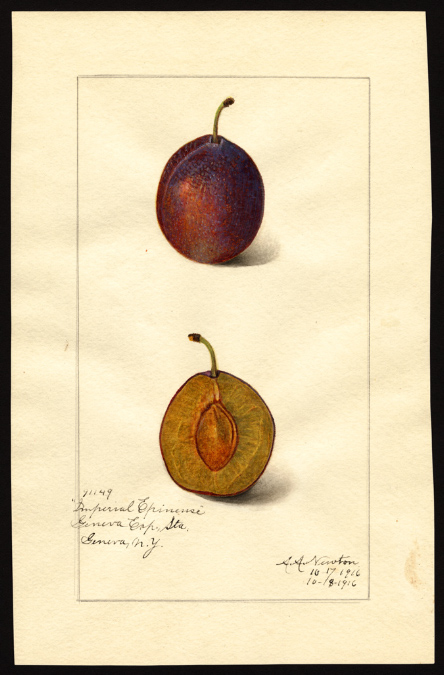 91149
"Imperial Epineuse"
Geneva Exp. Sta.
Geneva, N.Y.
A.A. Newton
10-17-1916
10-18-1916